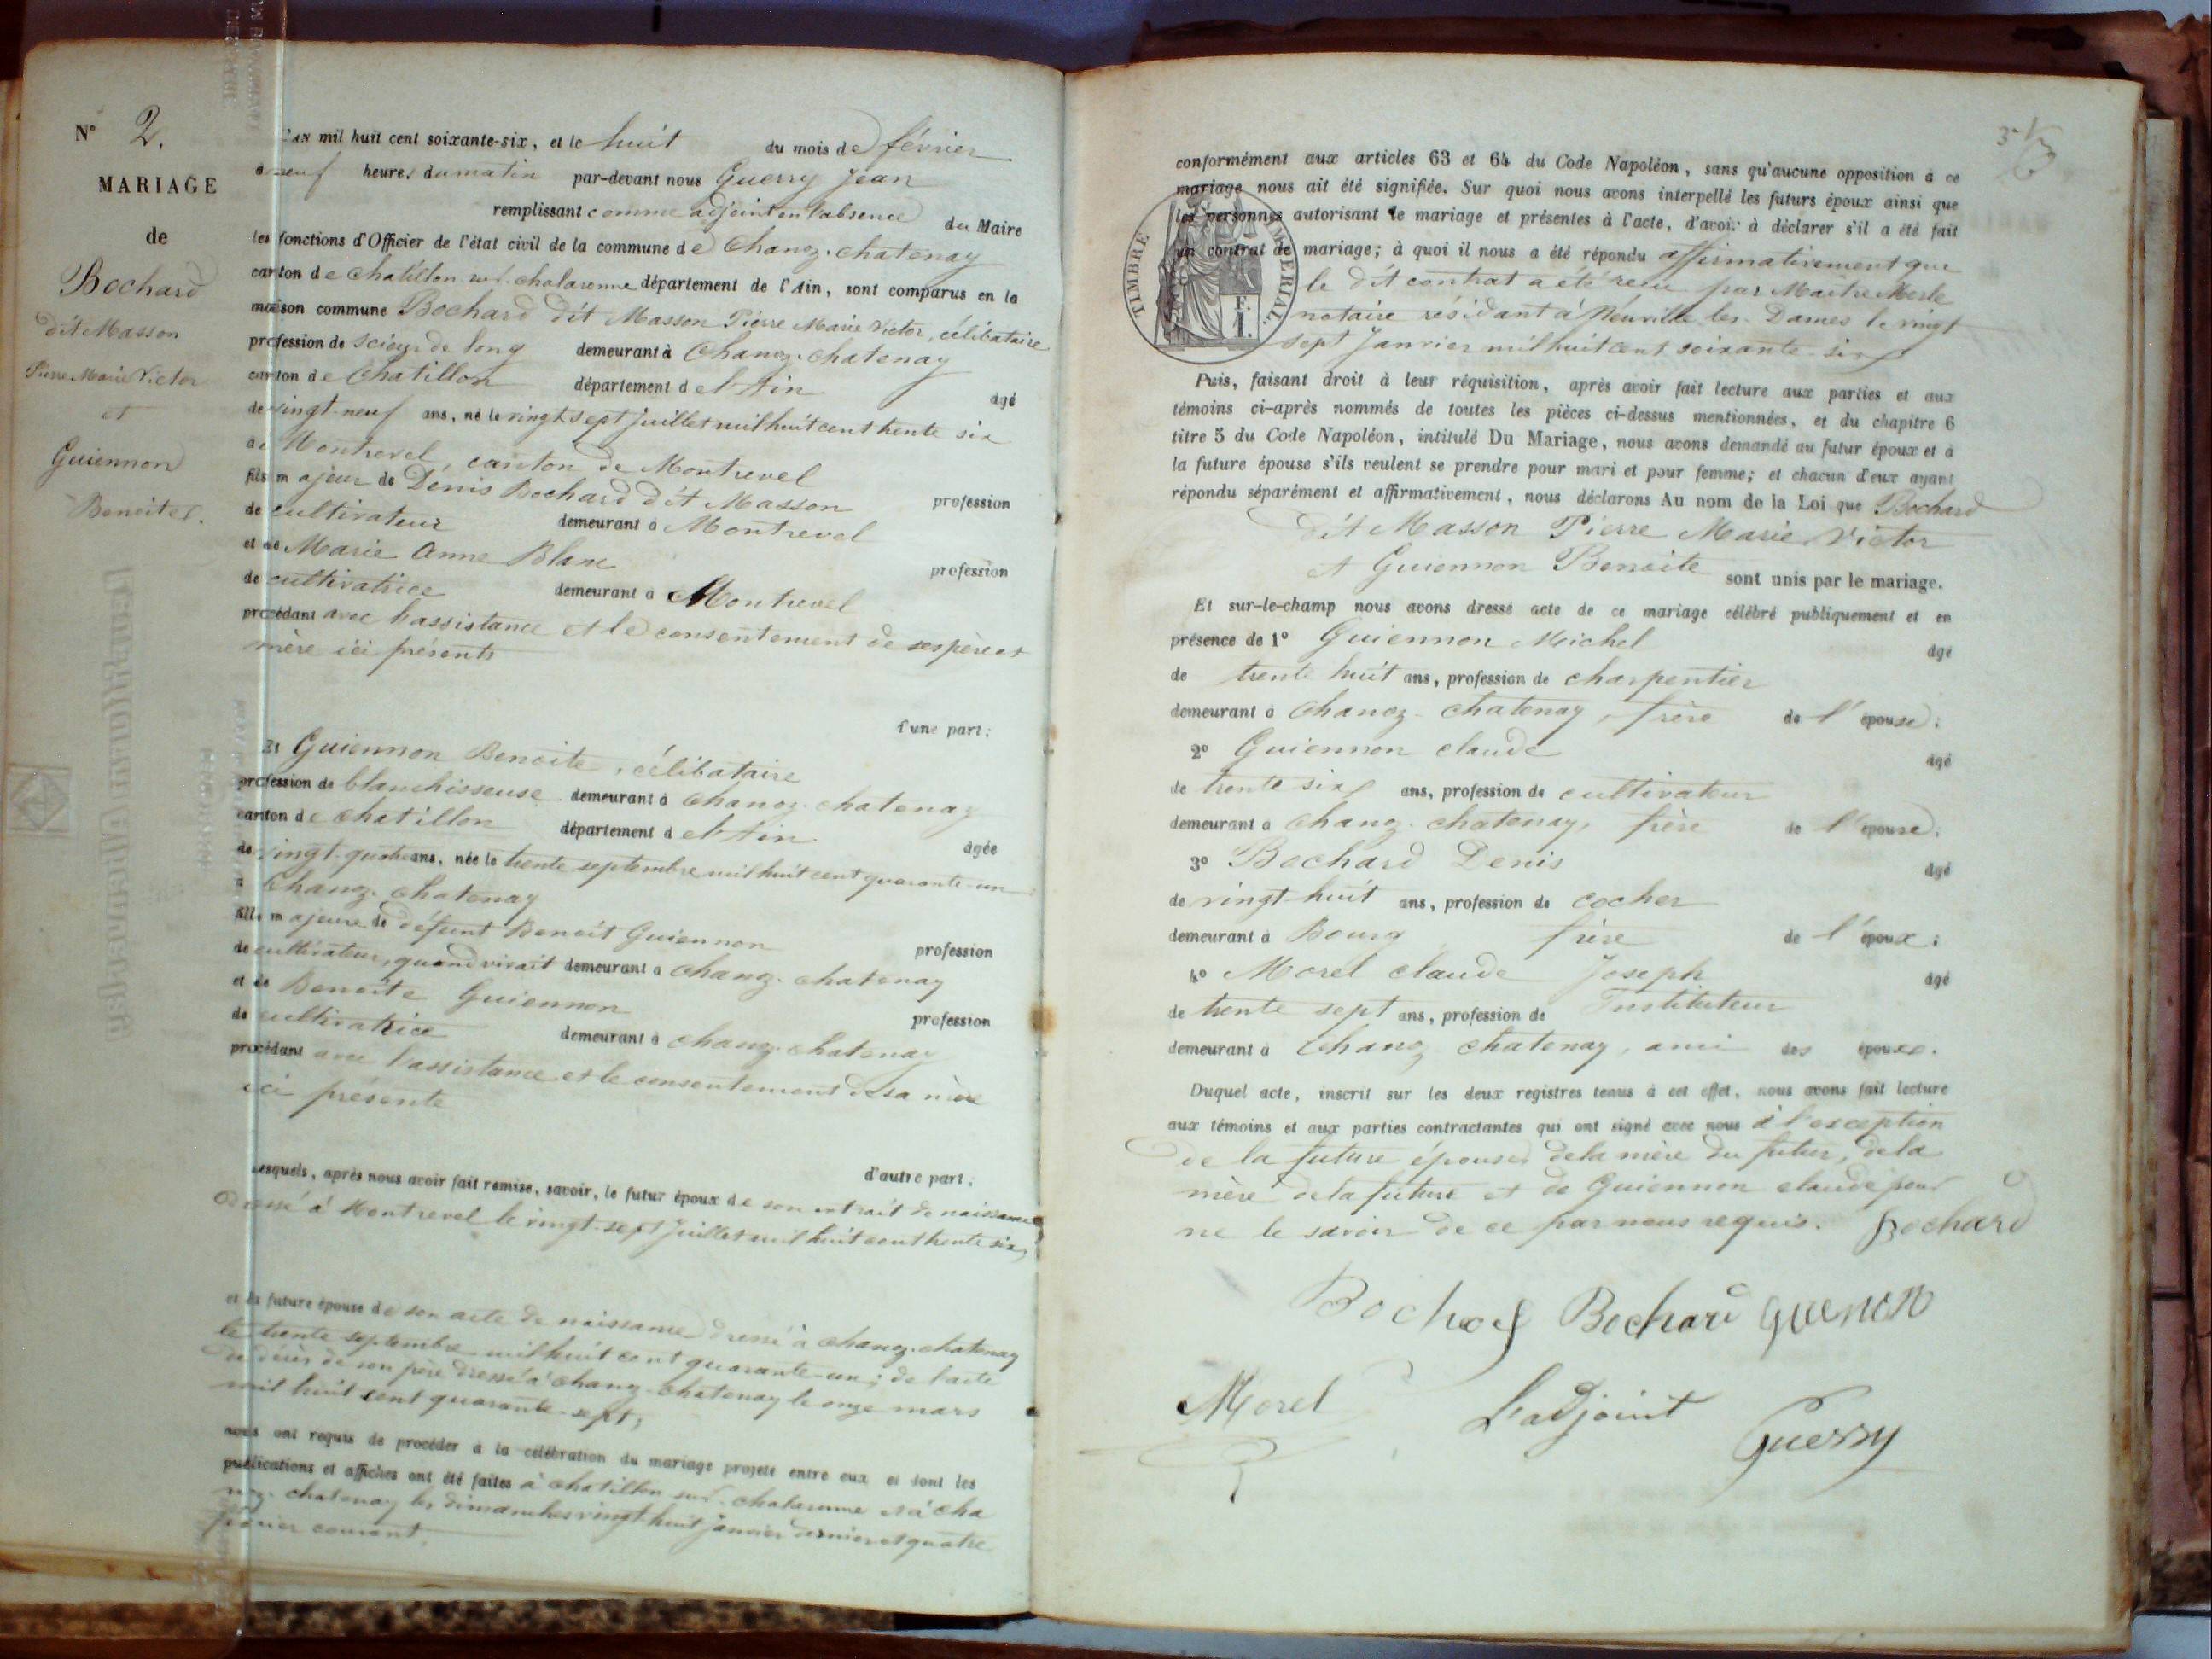 N° 2.
MARIAGE
de
Bochard
dit Masson
Pierre Marie Victor
et
Guiennon
Benoite.
L'AN mil huit cent soixante-six, et le huit du mois de février
a neuf heures du matin par-devant nous Guerry Jean
remplissant comme adjoint en l'absence du Maire
les fonctions d'Officier de l'état civil de la commune de Chanoz-chatenay
canton de chatillon sur chalaronne département de l'Ain, sont comparus en la
maison commune Bochard dit Masson Pierre Marie Victor, célibataire
profession de scieur de long demeurant à Chanoz-chatenay
canton de Chatillon département de l'Ain âgé
de vingt-neuf ans, né le vingt sept juillet mil huit cent trente six
à Montrevel, canton de Montrevel
fils majeur de Dénis Bochard dit Masson profession
de cultivateur demeurant à Montrevel
et de Marie Anne Blanc profession
de cultivatrice demeurant à Montrevel
procédant avec l'assistance et le consentement de ses père et
mère ici présents
d'une part;
Et Guiennon Benoite, célibataire
profession de blanchisseuse demeurant à Chanoz-chatenay
canton de chatillon département de l'Ain âgée
de vingt-quatre ans, née le trente septembre mil huit cent quarante-un
à Chanoz-chatenay
fille majeure de défunt Benoit Guiennon profession
de cultivateur, quand vivait demeurant à Chanoz-chatenay
et de Benoite Guiennon profession
de cultivatrice demeurant à Chanoz-chatenay
procédant avec l'assistance et le consentement de sa mère
ici présente
d'autre part;
Lesquels, après nous avoir fait remise, savoir, le futur époux de son extrait de naissance
dressé à Montrevel le vingt-sept juillet mil huit cent trente six,
et la future épouse de son acte de naissance dressé à Chanoz-chatenay
le trente septembre mil huit cent quarante-un; de l'acte
de décès de son père dressé à Chanoz-chatenay le onze mars
mil huit cent quarante-sept;
nous ont requis de procéder à la célébration du mariage projeté entre eux et dont les
publications et affiches ont été faites à chatillon sur chalaronne et à cha
noz-chatenay les dimanches vingt-huit janvier dernier et quatre
février courant
conformément aux articles 63 et 64 du Code Napoléon, sans qu'aucune opposition à ce
mariage nous ait été signifiée. Sur quoi nous avons interpellé les futurs époux ainsi que
les personnes autorisant le mariage et présentes à l'acte, d'avoir à déclarer s'il a été fait
un contrat de mariage; à quoi il nous a été répondu affirmativement que
le dit contrat a été reçu par Maître Merle
notaire résidant à Neuville les Dames le vingt
sept Janvier mil huit cent soixante-six
TIMBRE IMPERIAL.
F.
1.
Puis, faisant droit à leur réquisition, après avoir fait lecture aux parties et aux
témoins ci-après nommés de toutes les pièces ci-dessus mentionnées, et du chapitre 6
titre 5 du Code Napoléon, intitulé Du Mariage, nous avons demandé au futur époux et à
la future épouse s'ils veulent se prendre pour mari et pour femme; et chacun d'eux ayant
répondu séparément et affirmativement, nous déclarons Au nom de la Loi que Bochard
dit Masson Pierre Marie Victor
et Guiennon Benoite sont unis par le mariage.
Et sur-le-champ nous avons dressé acte de ce mariage célébré publiquement et en
présence de 1° Guiennon Michel âgé
de trente huit ans, profession de charpentier
demeurant à Chanoz-chatenay, frère de l'épouse;
2° Guiennon claude âgé
de trente six ans, profession de cultivateur
demeurant à Chanoz-chatenay, frère de l'épouse;
3° Bochard Denis âgé
de vingt-huit ans, profession de cocher
demeurant à Bourg frère de l'époux;
4° Morel claude Joseph âgé
de trente sept ans, profession de Instituteur
demeurant à Chanoz chatenay, ami des époux.
Duquel acte, inscrit sur les deux registres tenus à cet effet, nous avons fait lecture
aux témoins et aux parties contractantes qui ont signé avec nous à l'exception
de la future épouse, de la mère du futur, de la
mère de la future et de Guiennon claude pour
ne le savoir de ce par nous requis. Bochard
Bochard Bochard guenon
Morel L'adjoint Guerry